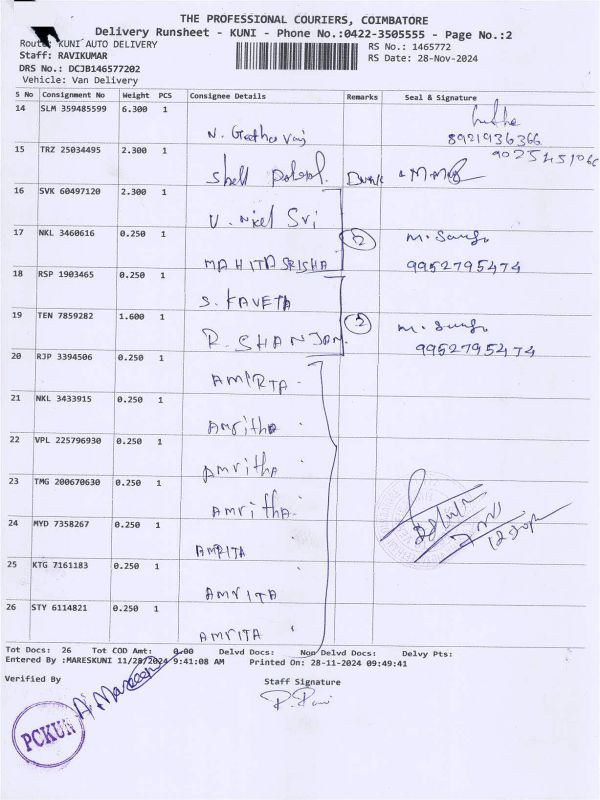 THE PROFESSIONAL COURIERS, COIMBATORE
Delivery Runsheet - KUNI - Phone No.:0422-3505555 - Page No.:2
Route: KUNI AUTO DELIVERY
RS No.: 1465772
Staff: RAVIKUMAR
RS Date: 28-Nov-2024
DRS No.: DCJB146577202
Vehicle: Van Delivery
S No Consignment No Weight PCS Consignee Details Remarks Seal & Signature
14 SLM 359485599 6.300 1
8921936366
15 TRZ 25034495 2.300 1
Shell
16 SVK 60497120 2.300 1
Sri
17 NKL 3460616 0.250 1 2
MAHITA SRISHA 9952795474
18 RSP 1903465 0.250 1
S. KAVETA
19 TEN 7859282 1.600 1 2
R. SHANJAN 9952795474
20 RJP 3394506 0.250 1
AMIRTA
21 NKL 3433915 0.250 1
Amritha
22 VPL 225796930 0.250 1
Amritha
23 TMG 200670630 0.250 1
Amritha
24 MYD 7358267 0.250 1
AMRITA
25 KTG 7161183 0.250 1
AMRITA
26 STY 6114821 0.250 1
AMRITA
Tot Docs: 26 Tot COD Amt: 0.00 Delvd Docs: Non Delvd Docs: Delvy Pts:
Entered By :MARESKUNI 11/28/2024 9:41:08 AM Printed On: 28-11-2024 09:49:41
Verified By Staff Signature
PCKUN